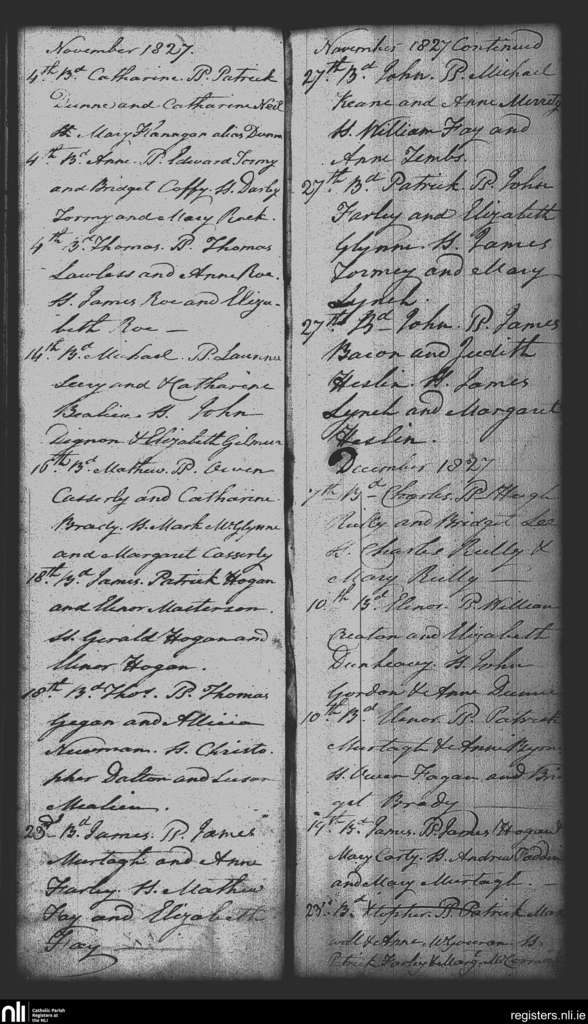 November 1827.
4th Bd Catharine. Pp Patrick
Dunne and Catharine Neil
H. Mary Flanngon alias Dunn
4th Bd Anne. Pp. Edward Tormy
and Bridget Coffy. H. Darby
Tormy and Mary Rock.
4th Bd Thomas. Pp Thomas
Lawless and Anne Roe.
H. James Roe and Eliza-
beth Roe —
14th Bd Michael. Pp Laurence
Leery and Catharine
H. John
Dignon & Elizabeth Gilmur
16th Bd Mathew. Pp. Owen
Casserly and Catharine
Brady. H. Mark McGlynne
and Margret Casserly
18th Bd James. Patrick Hogan
and Elenor Masterson.
H. Gerald Hogan and
Elinor Hogan.
18th Bd Thos. Pp Thomas
Gegan and Allicia
Newman. H. Christo-
pher Dalton and
Mealien.
23d Bd James. Pp. James
Murtagh and Anne
Farley. H. Mathew
Fay and Elizabeth
Fay
November 1827 Continued
27th Bd John. Pp. Michael
Keane and Anne
H. William Fay and
Anne Tembs.
27th Bd Patrick. Pp. John
Farley and Elizabeth
Glynne. H. James
Tormey and Mary
Lynch.
27th Bd John. Pp. James
Bacon and Judith
Heslin. H. James
Lynch and Margaret
Heslin.
December 1827
7th Bd Charles. Pp Hugh
Reilly and Bridget Lee
H. Charles Reilly &
Mary Reilly —
10th Bd Elenor. Pp William
Creaton and Elizabeth
Dunheavy. H. John
Gordon & Anne Dunne
10th Bd Elenor. Pp Patrick
Murtagh & Anne Byrne
H. Owen Fagan and Bri
get Brady
14th Bd. James. Pp James Hogan &
Mary Carty. H. Andrew Padden
and Mary Murtagh. —
23d Bd Xtopher. Pp Patrick
well & Anne McGouran H.
Patrick Farley & Margt McCormick
nli
Catholic Parish
Registers at
the NLI
registers.nli.ie